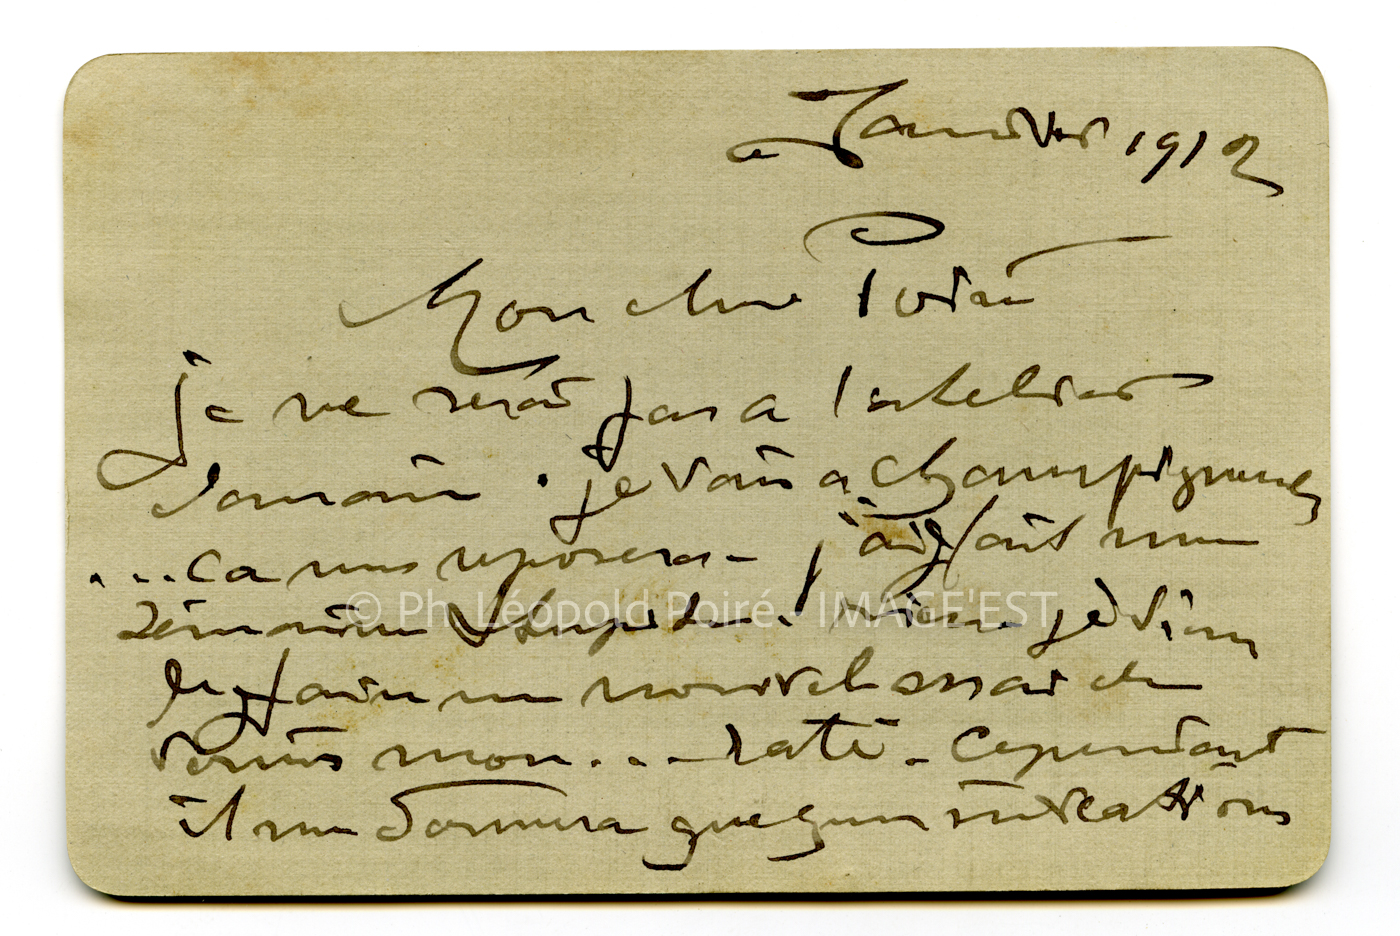 Janvier 1912
Mon cher Poiré
je ne serai pas a l'atelier
demain . je vais a Champigneulles
... ca me reposera - j'ai fait une
semaine stupide. je viens
de faire un nouvel essai de
vernis mou ... raté - cependant
il me donnera quelques indications
© Ph. Léopold Poiré - IMAGE'EST